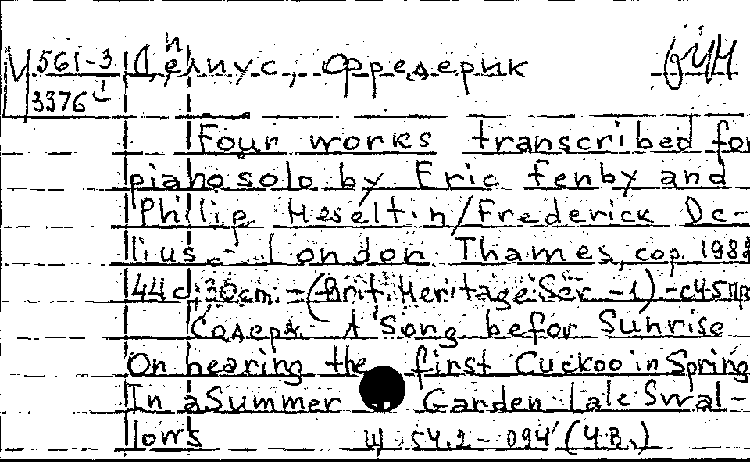 М 561-3 Делиус, Фредерик
3376
Four works transcribed for
piano solo by Eric Fenby and
Philip Heseltin/Frederick De-
lius. - London Thames, cop. 198
44 c; 30cm. - (Brit. Heritage Ser. -1)
Содерж. A Song befor Sunrise
On hearing the first Cuckoo in Spring
In a Summer Garden Late Swal-
lows Ш 54.2-094 (4В.)